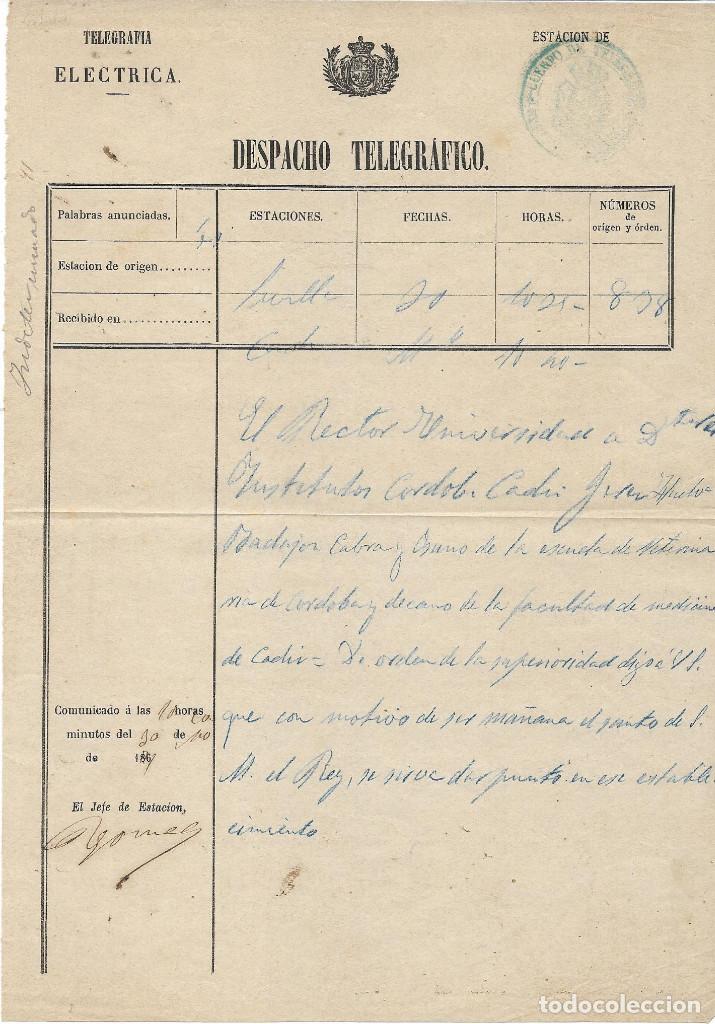 TELEGRAFIA
ELECTRICA.
ESTACION DE
CUERPO DE
DESPACHO TELEGRÁFICO.
Palabras anunciadas.
ESTACIONES.
FECHAS.
HORAS.
NÚMEROS
de
orígen y órden.
Estacion de origen
Sevilla 30 10 25 - 838
Recibido en
M 10 40 -
El Rector Universidad a
Institutos Cordoba Cadiz Huelva
Badajoz Cabra y Osuna de la escuela de Veterina
ria de Cordoba y decano de la facultad de medicina
de Cadiz = De orden de la superioridad digo á V S.
que con motivo de ser mañana el santo de S.
M. el Rey, se sirva dar punto en ese estable
cimiento
Comunicado á las 10 horas
minutos del 30 de
de 186
El Jefe de Estacion,
Gomez
todocoleccion